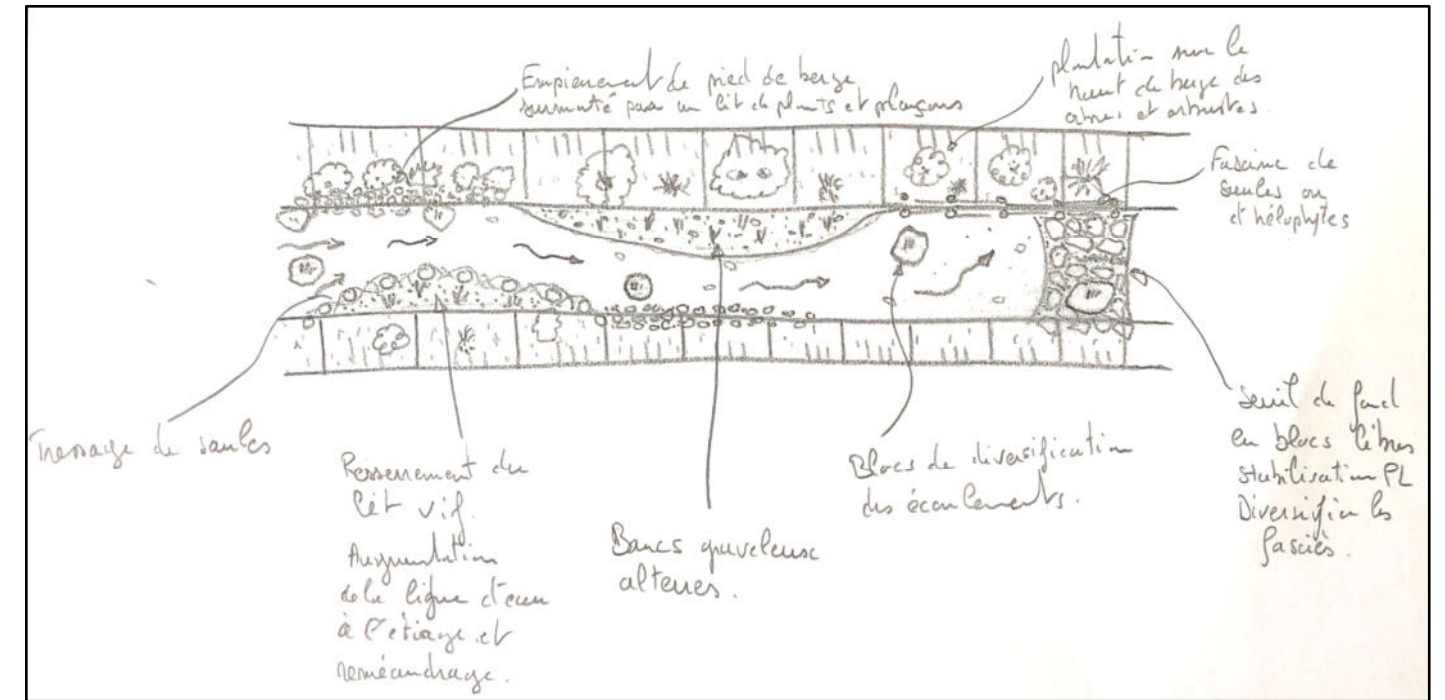 Empierrement de pied de berge
surmonté par un lit de plants et plançons
plantation sur le
haut de berge des
arbres et arbustes.
Fascine de
saules ou
et hélophytes
Tressage de saules
Resserrement du
lit vif.
Augmentation
de la ligne d'eau
à l'étiage et
reméandrage.
Bancs graveleux
alternes.
Blocs de diversification
des écoulements.
Seuil de fond
en blocs libres
stabilisation PL
Diversifier les
faciès.